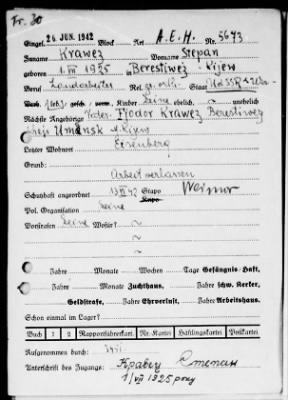 Fr. 30
Eingel. 26 JUN. 1942 Block Nr. A.E.H. Nr. 5673
Zuname Krawez Vorname Stepan
geboren 1.VII 1925 in Berestiwez - Kijew
Beruf Landarbeiter Rel. gr.-orth. Staat UdSSR
Verh. (led.) gesch. verw. Kinder keine ehelich ~ unehelich
Nächste Angehörige Vater: Fjodor Krawez Berestiwez
Kreis Umansk
Letzter Wohnort Eisenberg
Grund: Arbeit verlassen
Schutzhaft angeordnet 13.VI 42 Stapo Weimar
Kripo
Pol. Organisation keine
Vorstrafen keine Wofür? ~
Jahre Monate Wochen Tage Gefängnis/Haft,
Jahre Monate Zuchthaus, Jahre schw. Kerker,
Geldstrafe, Jahre Ehrverlust, Jahre Arbeitshaus.
Schon einmal im Lager?
Buch 1 2 Rapportführerkart. Nr.-Kartei Häftlingskartei Postkartei
Aufgenommen durch: 3951
Unterschrift des Zugangs: Кравец Степан
1/VII 1925 року